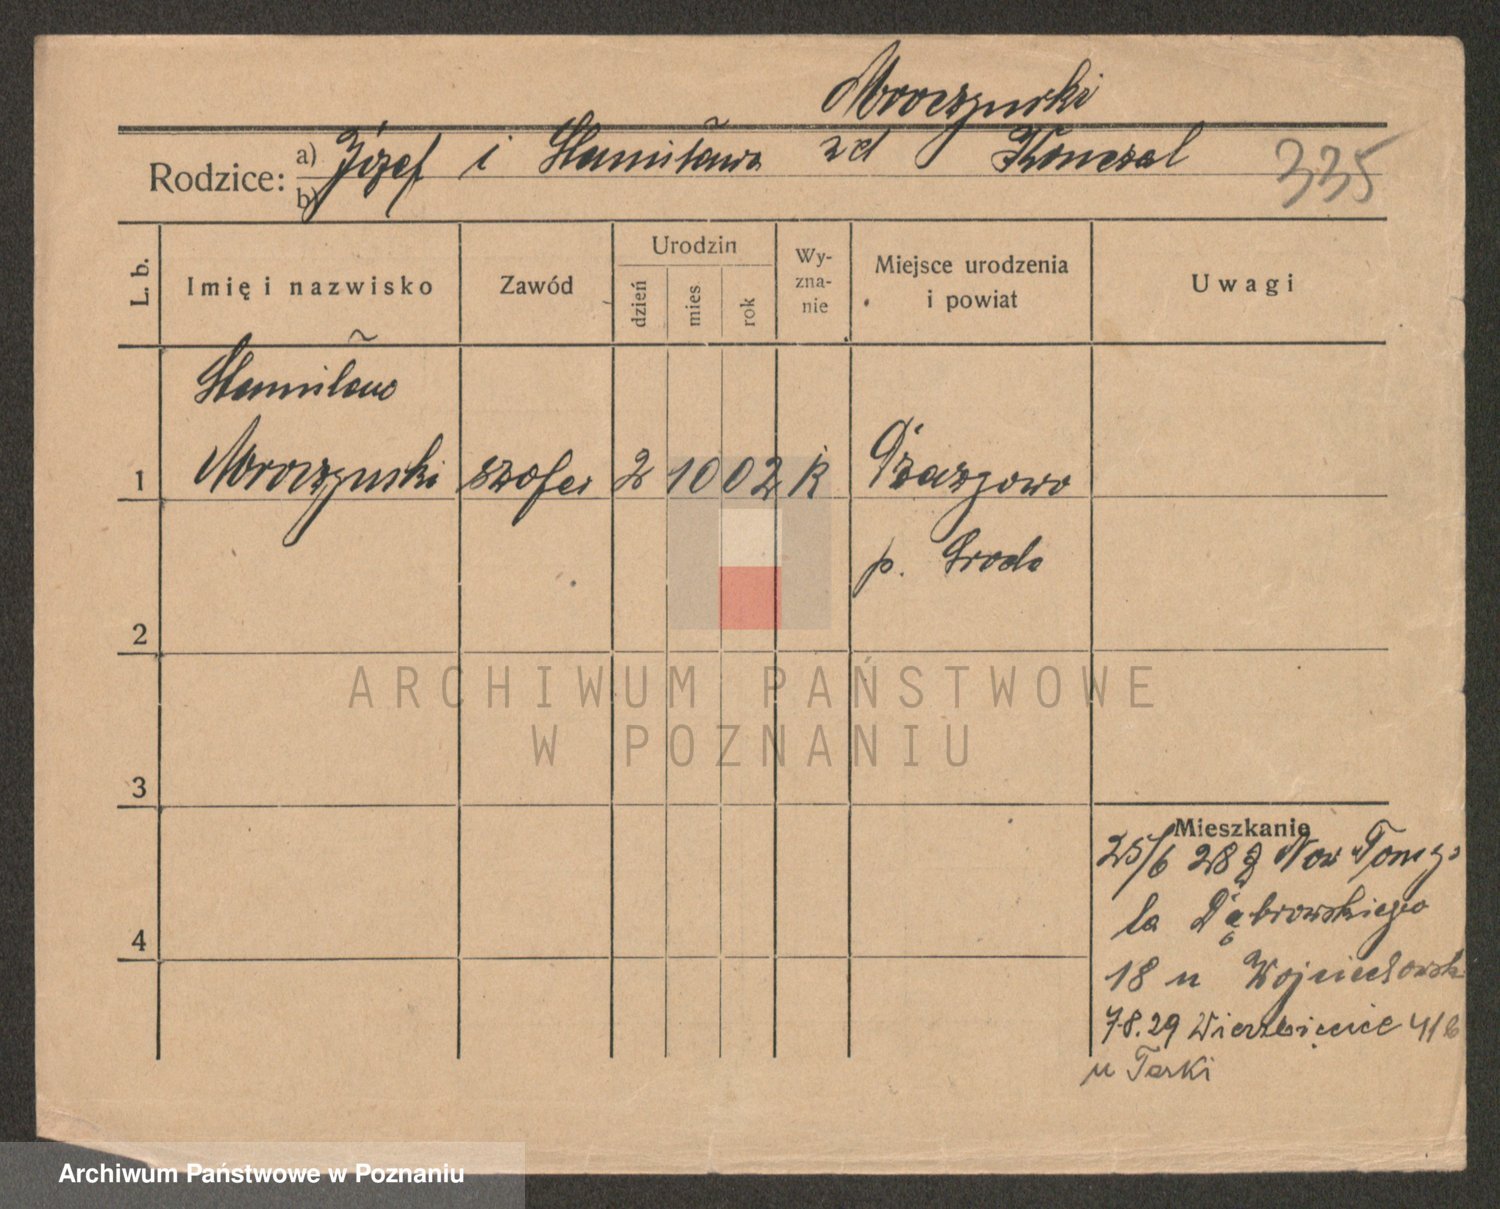 Mroczyński
Rodzice: a) Józef i Stanisława zd Konczal
b)
335
L. b. Imię i nazwisko Zawód Urodzin dzień mies rok Wy-zna-nie Miejsce urodzenia i powiat Uwagi
Stanisław
1 Mroczyński szofer 2 10 02 k
p. Środa
2
3
4
Mieszkanie
25/6 28 z Now Tomyś
la Dąbrowskiego
18 u Wojciechowsk
7.8.29 Wierzbięcice 41b
u Tarki
ARCHIWUM PAŃSTWOWE
W POZNANIU
Archiwum Państwowe w Poznaniu